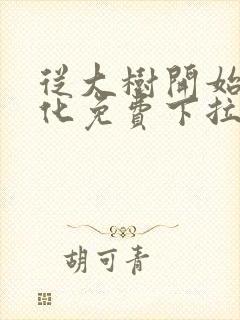 從大樹開始
化免費下拉
胡可青